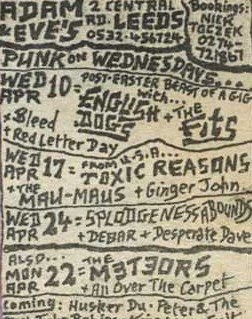 ADAM & EVE'S
2 CENTRAL RD. LEEDS
0532-456724
Bookings:
NICK
TOCZEK
0274-
721867
PUNK ON WEDNESDAYS...
WED APR 10 = POST-EASTER BEAST OF A GIG
with...
ENGLISH DOGS + THE FITS
+ Bleed
+ Red Letter Day
WED APR 17 = FROM U.S.A...
TOXIC REASONS
+ THE MAU-MAUS + Ginger John
WED APR 24 = SPLODGENESSABOUNDS
+ DEBAR + Desperate Dave
ALSO...
MON APR 22 = THE METEORS
+ All Over The Carpet
Coming: Husker Du • Peter & The